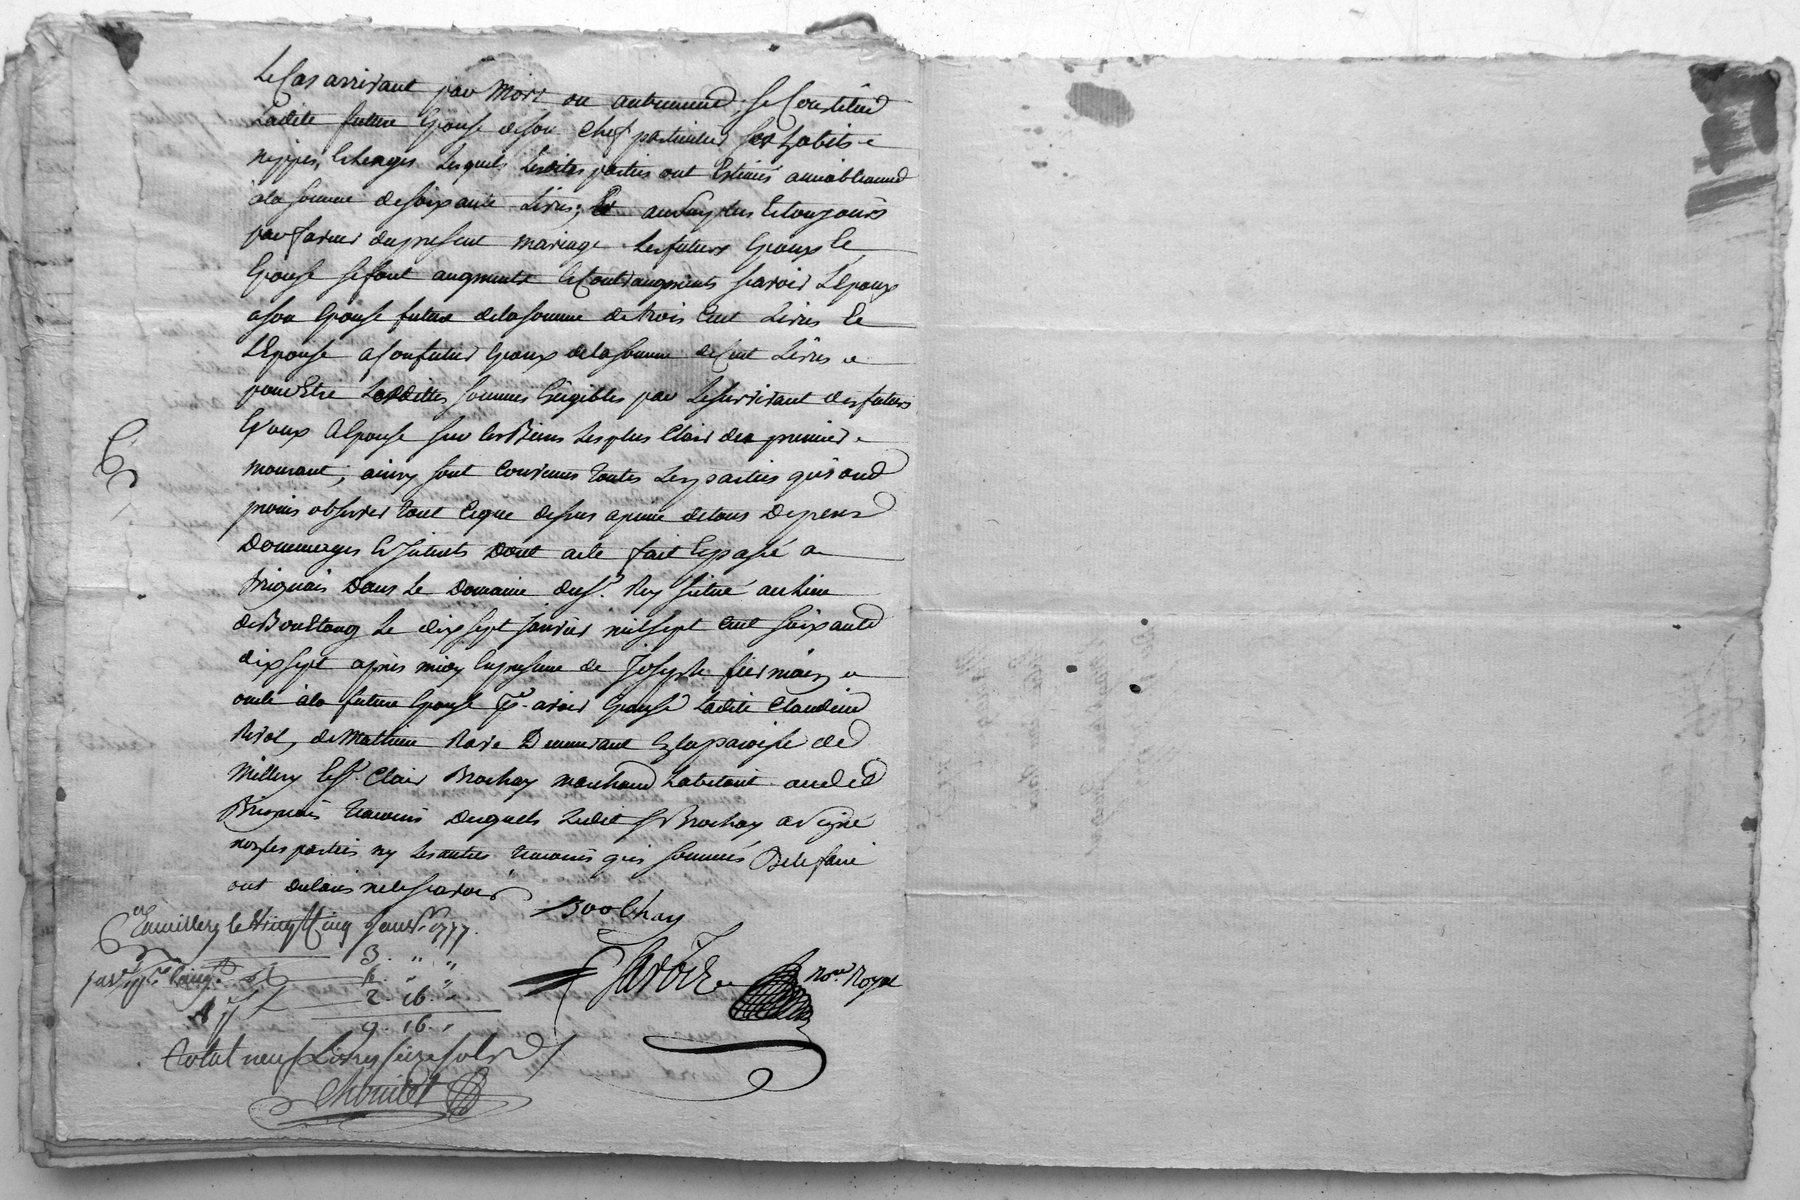 Le Cas arrivant par Mort ou autrement, se Constitüe
Ladite future Epouse de son Chef particulier ses habits
nippes, & linges Lesquels Lesdites parties ont Estimés amiablement
à la somme de soixante Livres; Et au surplus & toujours
par faveur du present mariage Les futurs Epoux &
Epouse se font augments & Contraugments scavoir L'Epoux
a son Epouse future de la somme de trois Cent Livres &
L'Epouse a son futur Epoux de la somme de Cent Livres
pour Etre Lesdittes sommes Exigibles par Le survivant des futurs
Epoux & Epouse sur les Biens Les plus Clairs du premier
mourant; ainsy sont Convenues toutes Les parties qui ont
promis observer tout Ce que dessus a peine de tous Depens
Dommages & Interets Dont acte fait & passé a
Brignais Dans Le Domaine du Sr. Rey situé au Lieu
de Bon Etang Le dix sept Janvier mil sept Cent soixante
dix sept après midy En presence de Joseph
oncle à la future Epouse pr. avoir Epousé Ladite Claudine
de Mathieu Rave Demeurant En la paroisse de
Millery & Sr. Clair Brochay marchand habitant audit
Brignais Temoins Desquels Ledit Sr Brochay a Signé
non les parties ny Les autres Temoins qui sommés De le faire
ont declaré ne le scavoir
Brochay
a millery le vingt Cinq Janvr. 1777.
3. " "
2. 16. "
9. 16. "
Nore. Royal
total neuf Livres seize sols